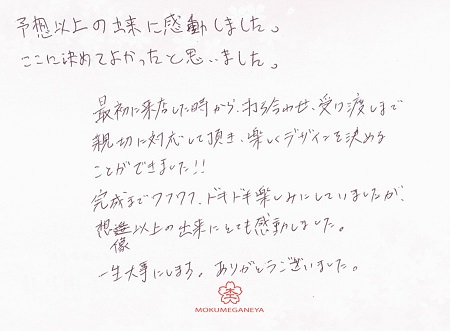 予想以上の出来に感動しました。
ここに決めてよかったと思いました。
最初に来店した時から、打ち合わせ、受け渡しまで
親切に対応して頂き、楽しくデザインを決める
ことができました!!
完成までワクワク、ドキドキ楽しみにしていましたが、
想像以上の出来にとても感動しました。
一生大事にします。ありがとうございました。
MOKUMEGANEYA